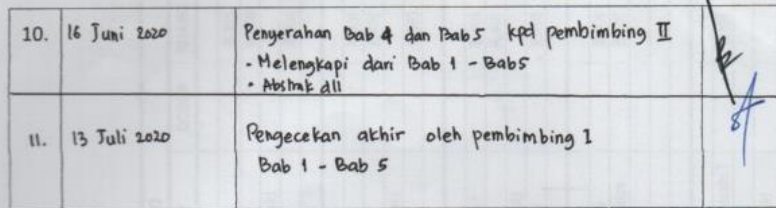 10. 16 Juni 2020 Penyerahan Bab 4 dan Bab 5 kpd pembimbing II
- Melengkapi dari Bab 1 - Bab 5
• Abstrak dll
11. 13 Juli 2020 Pengecekan akhir oleh pembimbing 1
Bab 1 - Bab 5